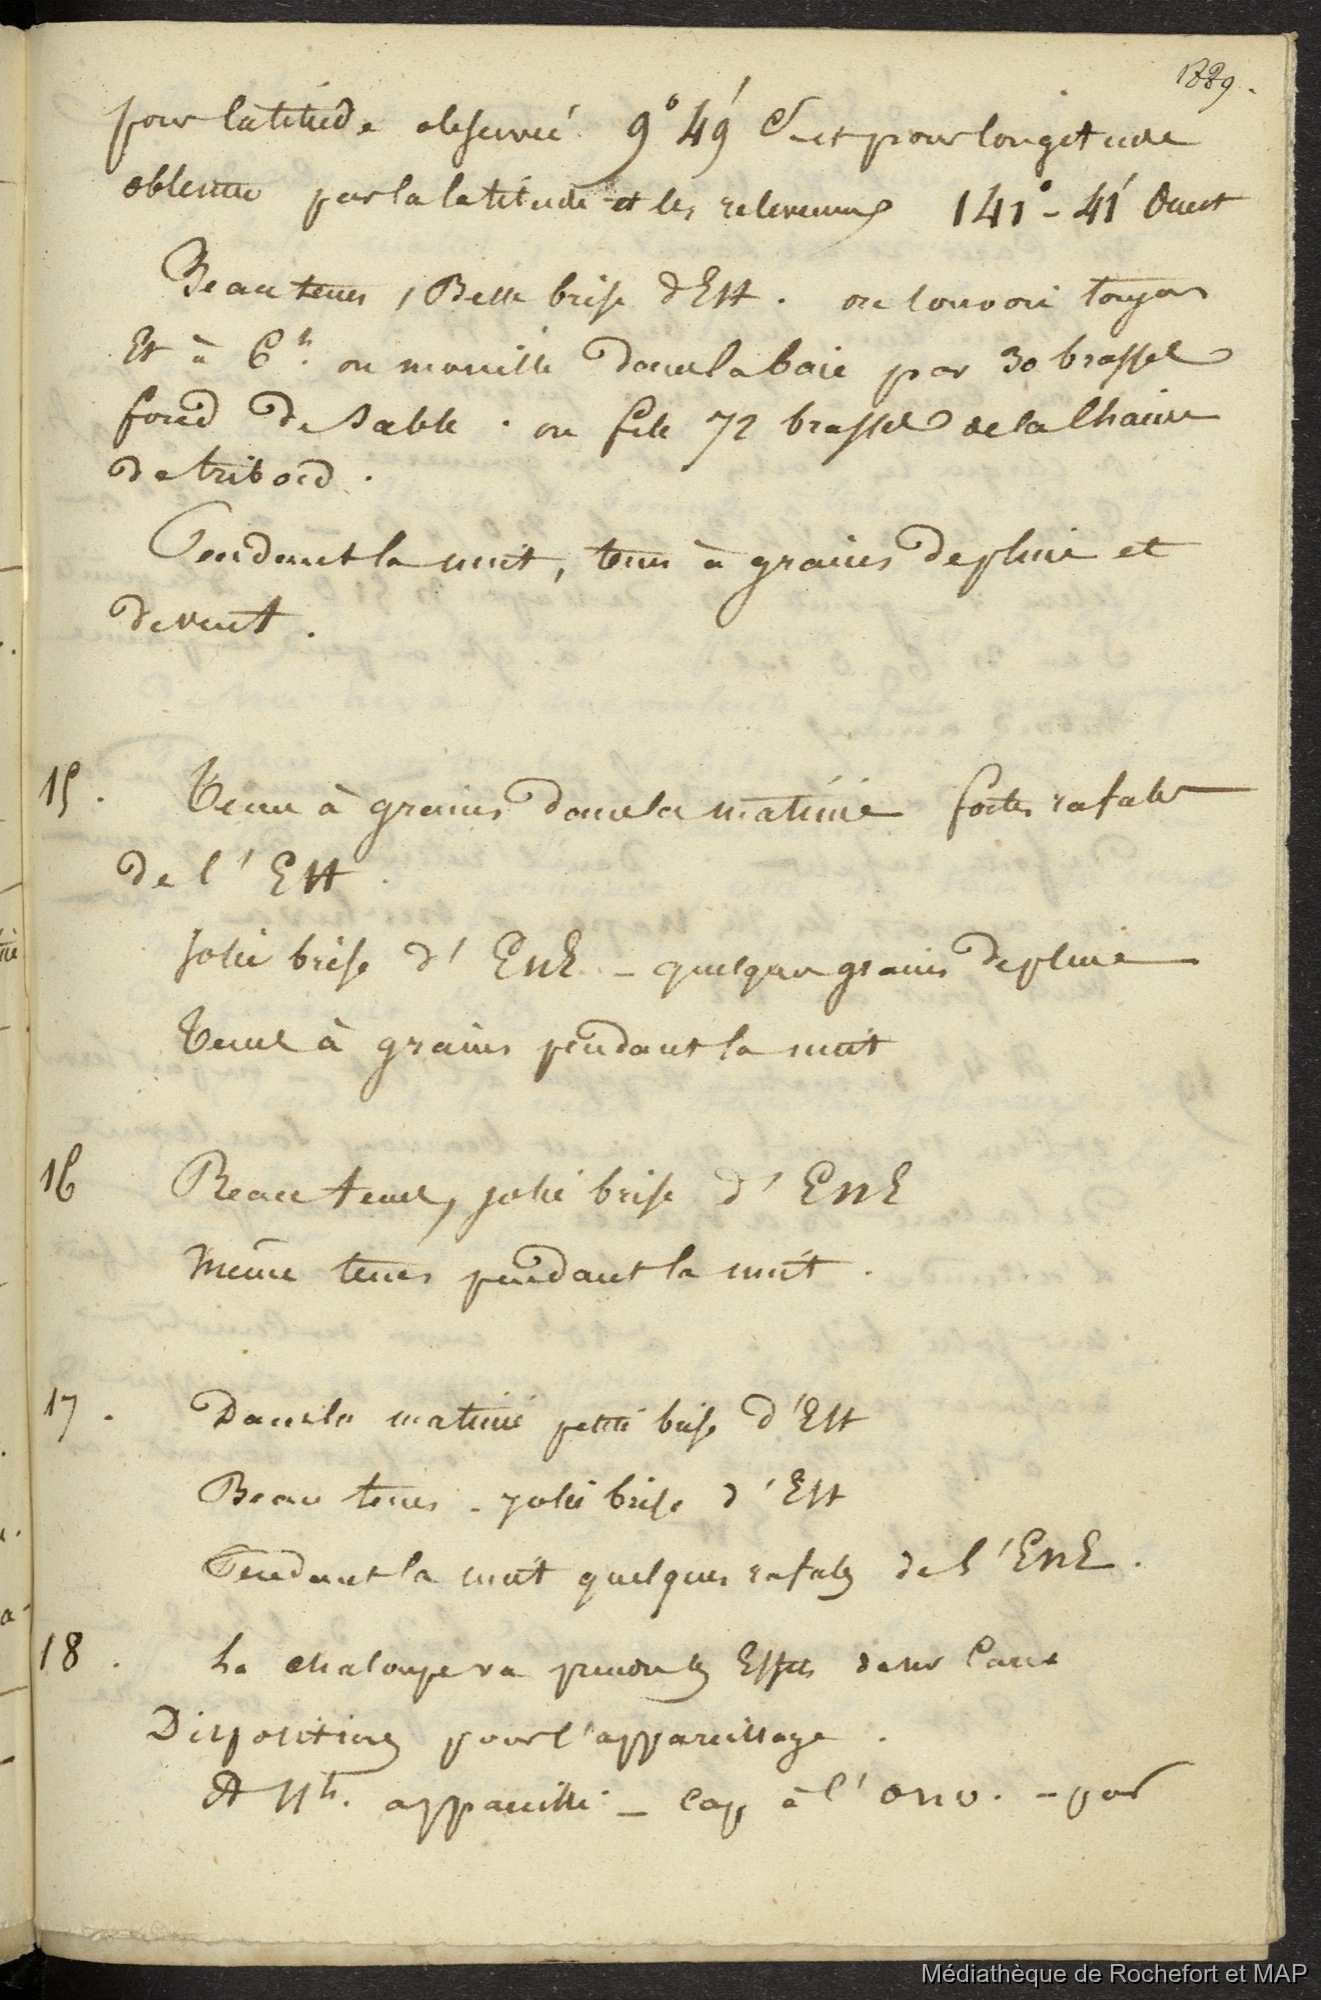 1889.
pour latitude observée 9° 49' S et pour longitude
obtenue par la latitude et les relevemens 141° - 41' Ouest
Beau tems, Belle brise d'Est. on louvoie toujours
Et à 6h. on mouille dans la baie par 30 brasses
fond de sable. on file 72 brasses de la Chaine
de tribord.
Pendant la nuit, tems à grains de pluie et
de vent.
15. Tems à grains dans la matinée fortes rafales
de l'Est.
Jolie brise d'ENE - quelques grains de pluie
Tems à grains pendant la nuit
16 Beau tems, jolie brise d'ENE
Même tems pendant la nuit.
17. Dans la matinée petite brise d'Est
Beau tems - jolie brise d'Est
Pendant la nuit quelques rafales de l'ENE.
18. La chaloupe va prendre les Effets dans l'anse
Dispositions pour l'appareillage.
A 11h. appareillé - Cap à l'ONO. - par
Médiathèque de Rochefort et MAP